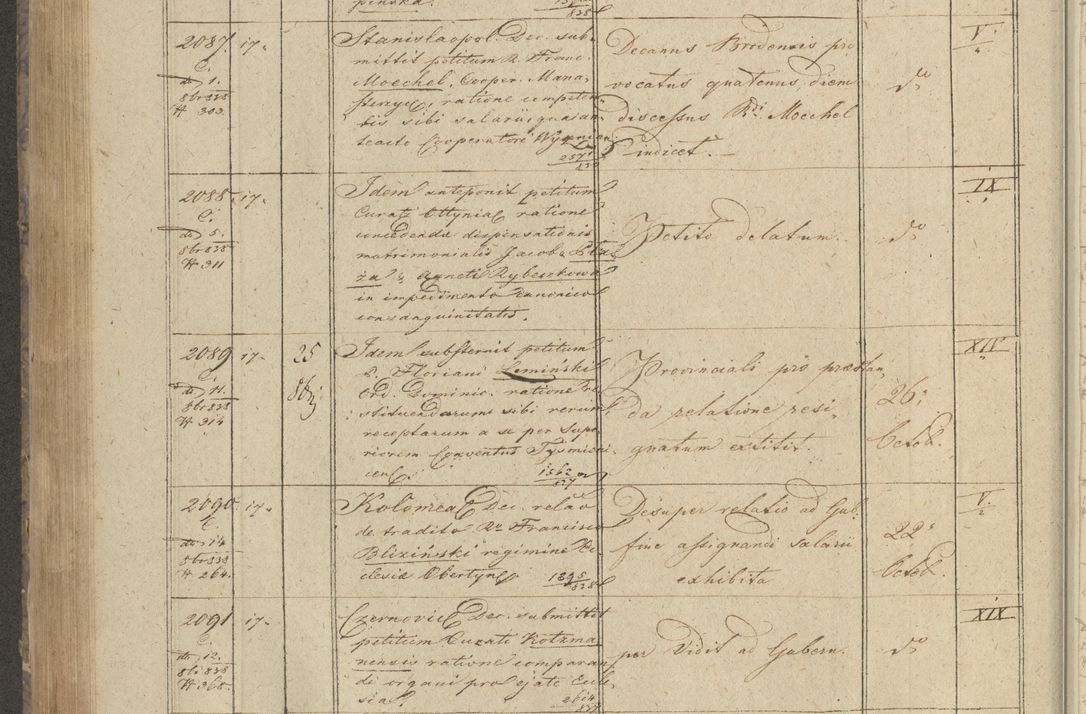 2087. 17.
C.
do 1.
8br 838
N 303.
Stanislaopol. Dec. sub-
mittit petitum R. Franc.
Moechel, Cooper. Mana-
sterzyc, ratione competen-
tis sibi salarii, qua an-
teacto Cooperatori
2571
838
Decanus Brodensis pro
vocatus quatenus diem
discessus Rdi Moechel
indicet.
do
V.
2088. 17.
C.
do 5.
8br 838
N 311
Idem anteponit petitum
Curati Ottyniae ratione
concedendae dispensationis
matrimonialis Jacobo
za & Agneti Rybeszkowa
in impedimento canonico
consanguinitatis.
Petito delatum.
do
IX
2089 17.
C.
do 11.
8br 838
N 314
25
8br
Idem substernit petitum
P. Floriani Zemiński
Ord. Dominic. ratione re-
stituendarum sibi rerum
receptarum a se per Supe-
riorem Conventus Tysmieni-
cens.
1562
837
Provinciali pro præstan-
da relatione resi-
gnatum extitit.
26.
Octob.
XIV
2090 17.
C.
do 14
8br 838
N 264.
Kolomea Dec. relat.
de tradito Rdo Francisco
Bliziński regimine Ec-
clesiæ Obertyn.
1895
838
Desuper relatio ad Gub.
fine assignandi salarii
exhibita
22.
Octob.
V.
2091 17.
C.
do 12.
8br 838
N 368.
Czernovic Dec. submittit
petitum Curati Kotzma-
nensis ratione comparan-
di organi pro ejate Eccle-
sia.
2614
837
per Vidit ad Gubern.
do
XIX